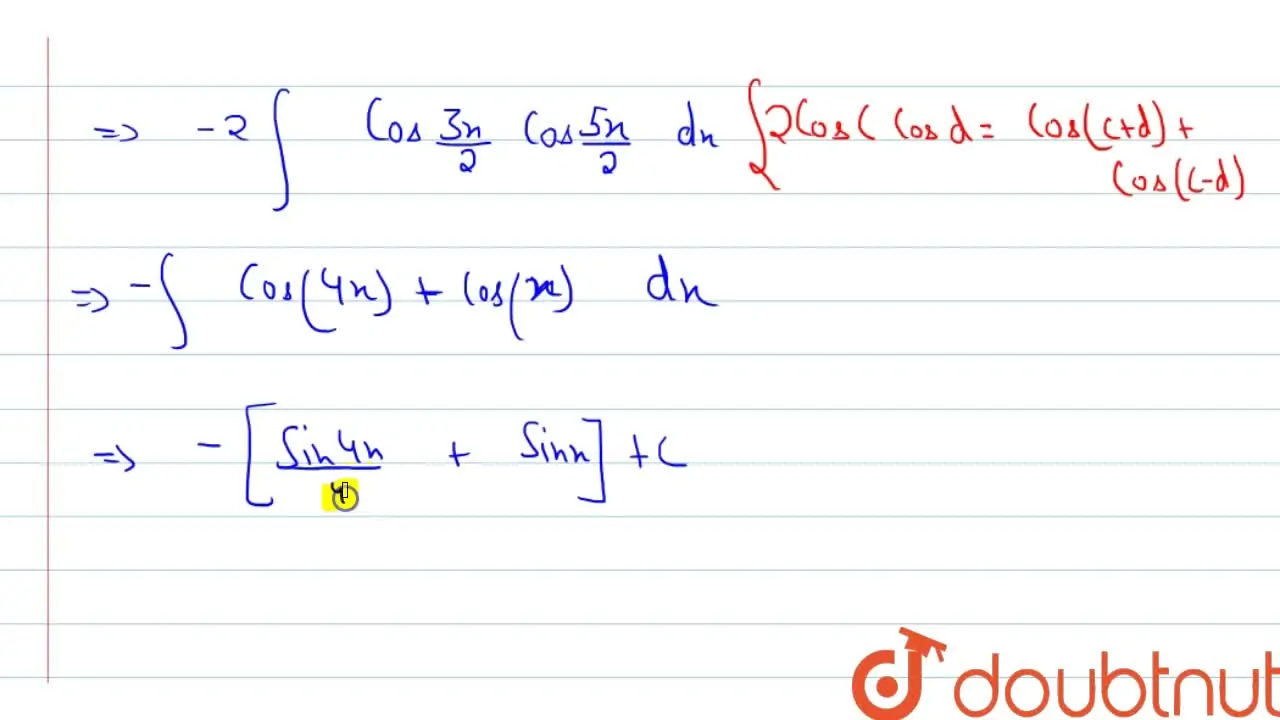 => -2 ∫ Cos 3x/2 Cos 5x/2 dx ∫ 2Cos C Cos d = Cos(c+d) +
Cos(c-d)
=> -∫ Cos(4x) + Cos(x) dx
=> -[Sin4x/4 + Sinx] + C
doubtnut